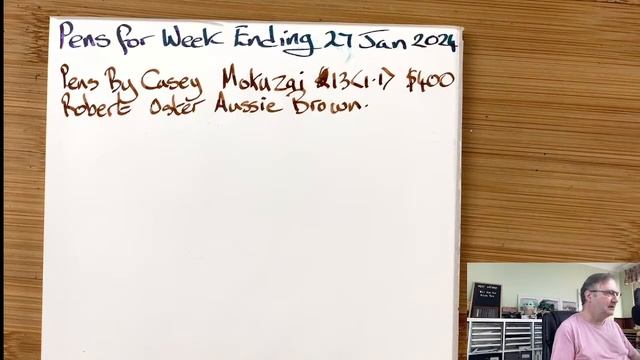 Pens for Week Ending 27 Jan 2024
Pens By Casey Mokuzai 13<1.1> $400
Robert Oster Aussie Brown.